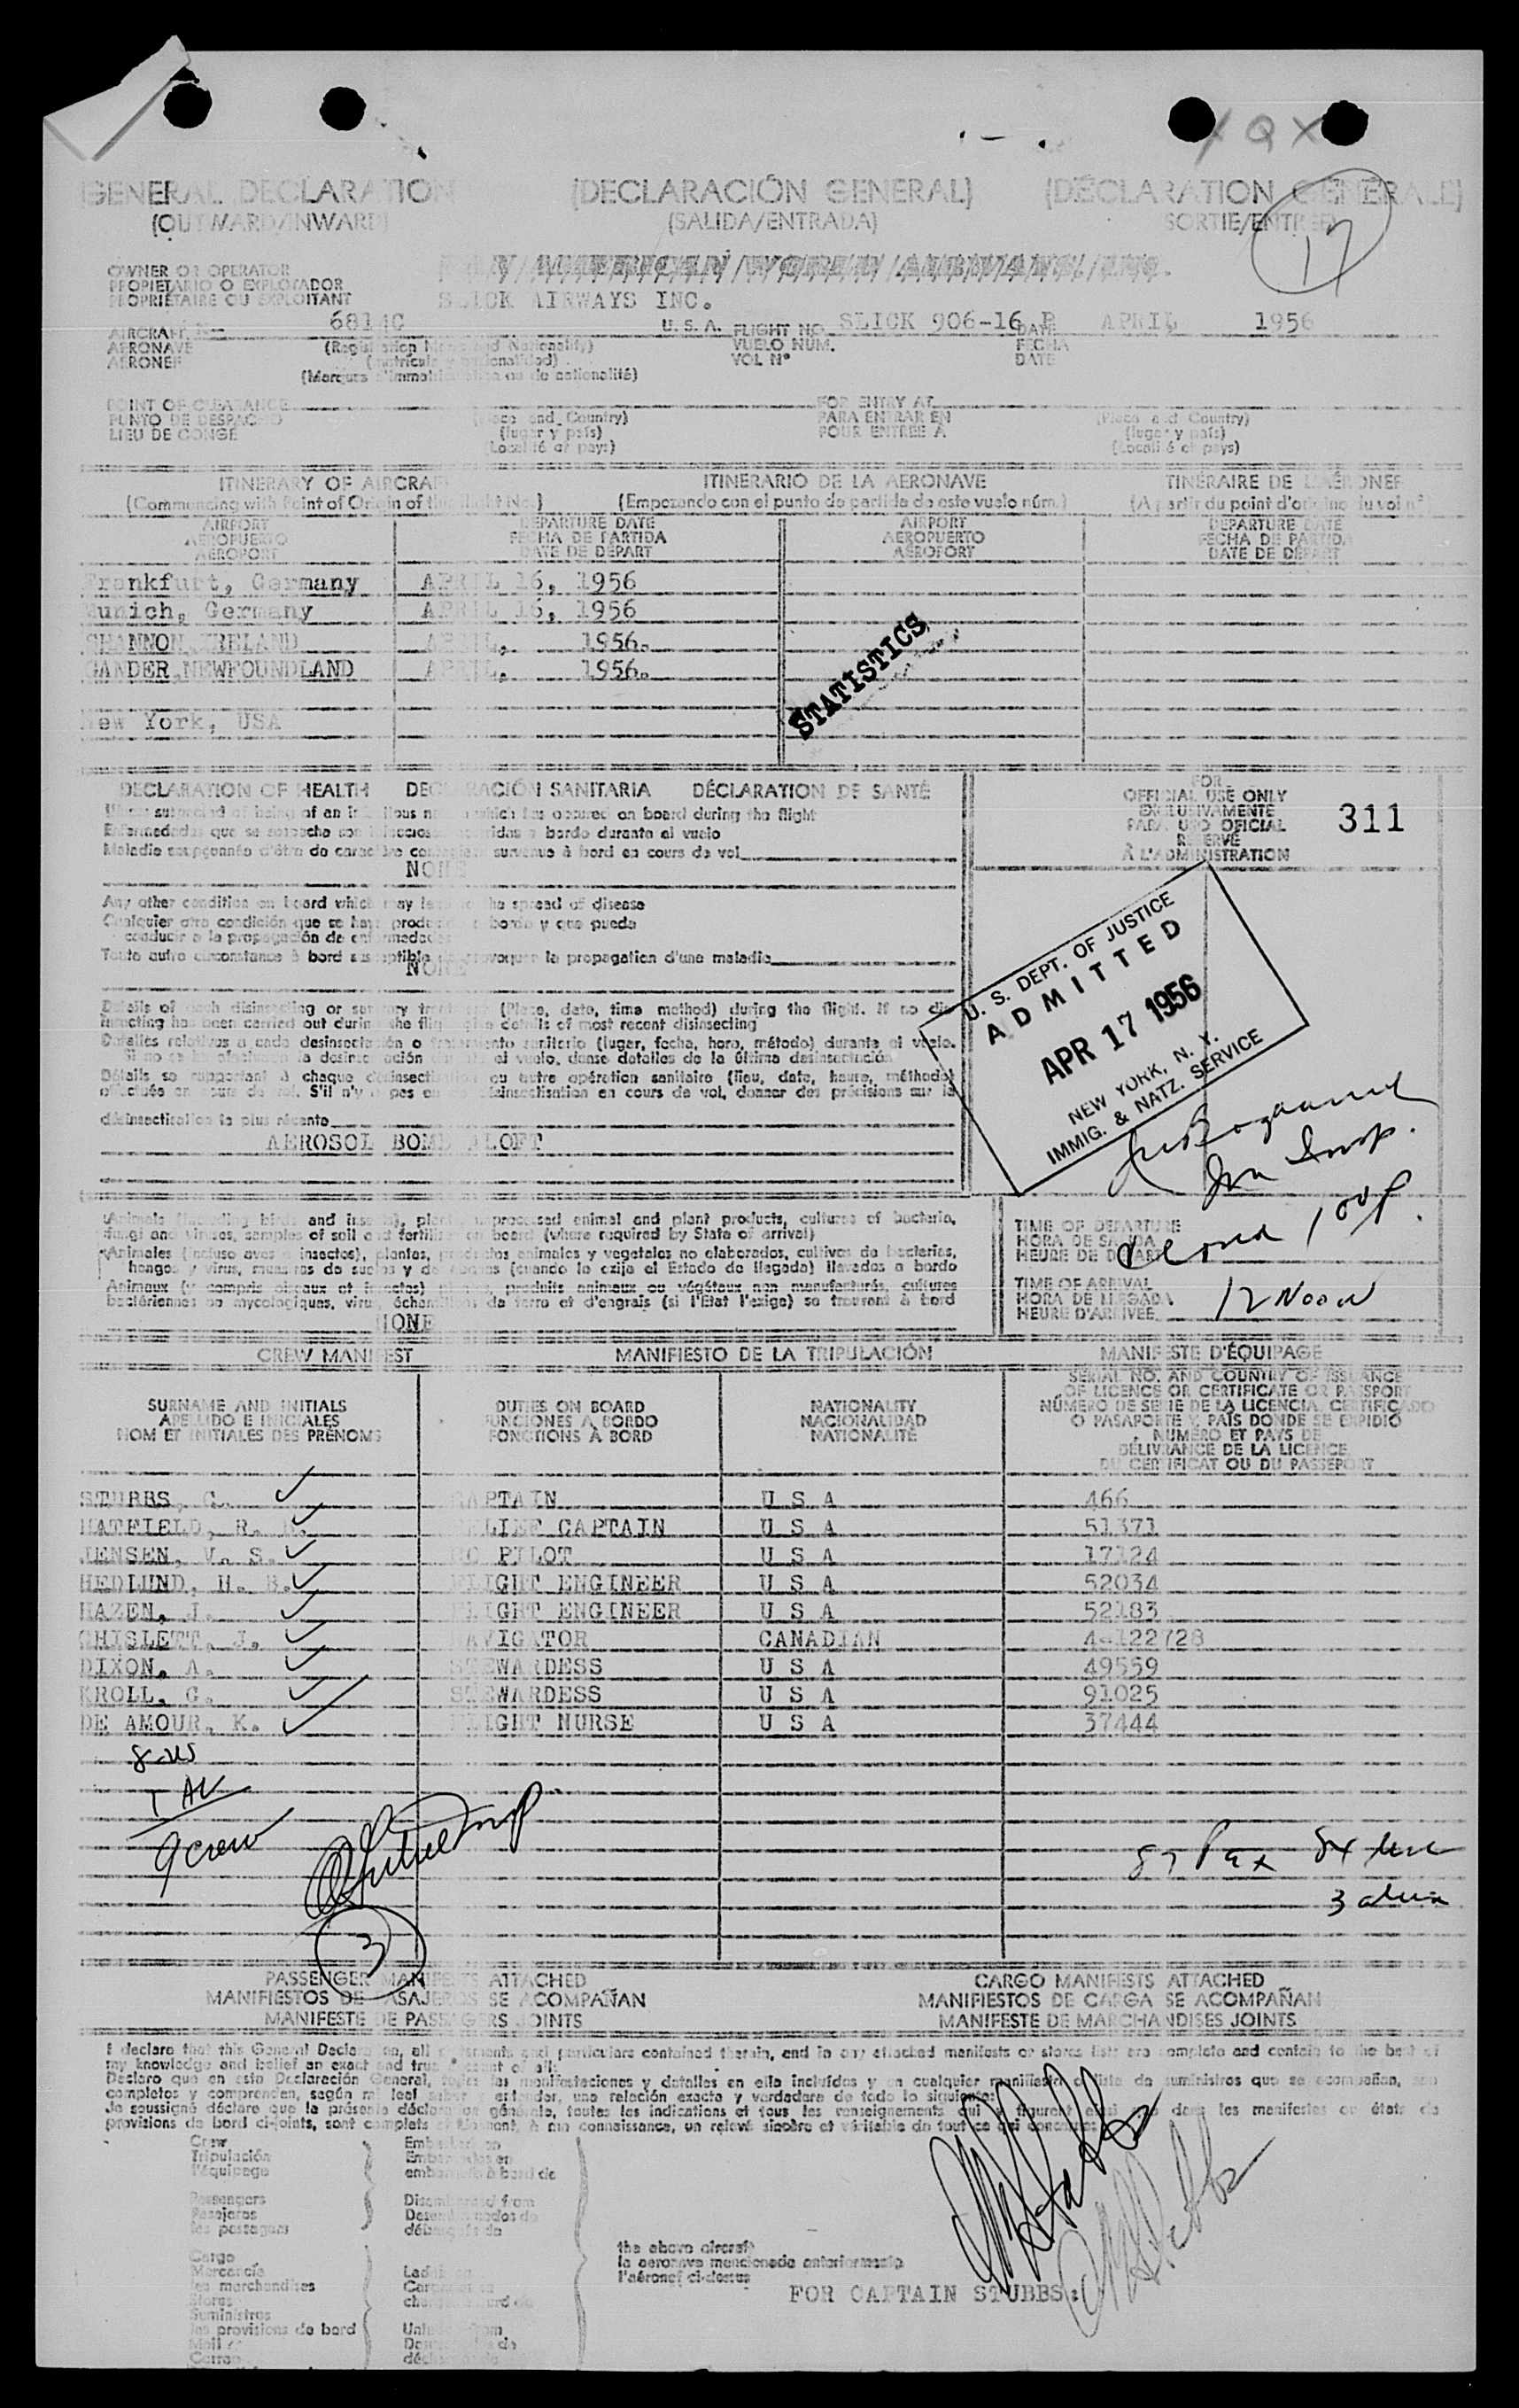 GENERAL DECLARATION (DECLARACIÓN GENERAL) (DÉCLARATION GÉNÉRALE)
(OUTWARD/INWARD) (SALIDA/ENTRADA) SORTIE/ENTRÉE)
17
OWNER OR OPERATOR
PROPIETARIO O EXPLOTADOR
PROPRIÉTAIRE OU EXPLOITANT SLICK AIRWAYS INC.
AIRCRAFT 6814C U.S.A. FLIGHT NO. SLICK 906-16 DATE APRIL 1956
AERONAVE (Registration and Nationality) VUELO NÚM. FECHA
AERONEF (matrícula y nacionalidad) VOL N° DATE
(Marques d'immatriculation ou de nationalité)
POINT OF CLEARANCE FOR ENTRY AT
PUNTO DE DESPACHO (Place and Country) PARA ENTRAR EN (Place and Country)
LIEU DE CONGÉ (lugar y país) POUR ENTRÉE À (lugar y país)
(Localité et pays) (Localité et pays)
ITINERARY OF AIRCRAFT ITINERARIO DE LA AERONAVE ITINÉRAIRE DE L'AÉRONEF
(Commencing with Point of Origin of this Flight No.) (Empezando con el punto de partida de este vuelo núm.) (A partir du point d'origine du vol n°
AIRPORT DEPARTURE DATE AIRPORT DEPARTURE DATE
AEROPUERTO FECHA DE PARTIDA AEROPUERTO FECHA DE PARTIDA
AÉROPORT DATE DE DÉPART AÉROPORT DATE DE DÉPART
Frankfurt, Germany APRIL 16, 1956
Munich, Germany APRIL 16, 1956
SHANNON, IRELAND APRIL, 1956.
GANDER, NEWFOUNDLAND APRIL, 1956.
STATISTICS
New York, USA
DECLARATION OF HEALTH DECLARACIÓN SANITARIA DÉCLARATION DE SANTÉ
Illness suspected of being of an infectious nature which has occured on board during the flight
Enfermedades que se sospecha son infecciosas ocurridas a bordo durante el vuelo
Maladie soupçonnée d'être de caractère contagieux survenue à bord en cours de vol
NONE
FOR
OFFICIAL USE ONLY
EXCLUSIVAMENTE
PARA USO OFICIAL
RÉSERVÉ
À L'ADMINISTRATION
311
Any other condition on board which may lead to the spread of disease
Cualquier otra condición que se haya producido a bordo y que pueda
conducir a la propagación de enfermedades
Toute autre circonstance à bord susceptible de provoquer la propagation d'une maladie
NONE
U. S. DEPT. OF JUSTICE
ADMITTED
APR 17 1956
NEW YORK, N. Y.
IMMIG. & NATZ. SERVICE
Details of each disinsecting or sanitary treatment (Place, date, time method) during the flight. If no disinsecting has been carried out during the flight give details of most recent disinsecting
Detalles relativos a cada desinsectación o tratamiento sanitario (lugar, fecha, hora, método) durante el vuelo.
Si no se ha efectuado la desinsectación durante el vuelo, dense detalles de la última desinsectación
Détails se rapportant à chaque désinsectisation ou autre opération sanitaire (lieu, date, heure, méthode)
effectuée en cours de vol. S'il n'y a pas eu désinsectisation en cours de vol, donner des précisions sur la
désinsectisation la plus récente
AEROSOL BOMB ALOFT
Animals (including birds and insects), plants, unprocessed animal and plant products, cultures of bacteria,
fungi and viruses, samples of soil and fertilizer on board (where required by State of arrival)
Animales (incluso aves e insectos), plantas, productos animales y vegetales no elaborados, cultivos de bacterias,
hongos y virus, muestras de suelos y de abonos (cuando lo exija el Estado de llegada) llevados a bordo
Animaux (y compris oiseaux et insectes) plantes, produits animaux ou végétaux non manufacturés, cultures
bactériennes ou mycologiques, virus, échantillons de terre et d'engrais (si l'Etat l'exige) se trouvant à bord
NONE
TIME OF DEPARTURE
HORA DE SALIDA
HEURE DE DÉPART
TIME OF ARRIVAL
HORA DE LLEGADA
HEURE D'ARRIVÉE 12 Noon
CREW MANIFEST MANIFIESTO DE LA TRIPULACIÓN MANIFESTE D'ÉQUIPAGE
SURNAME AND INITIALS DUTIES ON BOARD NATIONALITY SERIAL NO. AND COUNTRY OF ISSUANCE
APELLIDO E INICIALES FUNCIONES A BORDO NACIONALIDAD OF LICENCE OR CERTIFICATE OR PASSPORT
NOM ET INITIALES DES PRÉNOMS FONCTIONS À BORD NATIONALITÉ NÚMERO DE SERIE DE LA LICENCIA, CERTIFICADO
O PASAPORTE Y PAÍS DONDE SE EXPIDIÓ
NUMÉRO ET PAYS DE
DÉLIVRANCE DE LA LICENCE
DU CERTIFICAT OU DU PASSEPORT
STUBBS, C. CAPTAIN U S A 466
HATFIELD, R. RELIEF CAPTAIN U S A 51371
JENSEN, V. S. CO PILOT U S A 17124
HEDLUND, H. B. FLIGHT ENGINEER U S A 52034
HAZEN, J. FLIGHT ENGINEER U S A 52183
CHISLETT, J. NAVIGATOR CANADIAN 4-122728
DIXON, A. STEWARDESS U S A 49559
KROLL, C. STEWARDESS U S A 91025
DE AMOUR, K. FLIGHT NURSE U S A 37444
8 US
1 AL
9 crew
87 Pax 84
3 alien
3
PASSENGER MANIFESTS ATTACHED CARGO MANIFESTS ATTACHED
MANIFIESTOS DE PASAJEROS SE ACOMPAÑAN MANIFIESTOS DE CARGA SE ACOMPAÑAN
MANIFESTE DE PASSAGERS JOINTS MANIFESTE DE MARCHANDISES JOINTS
I declare that this General Declaration, all statements and particulars contained therein, and in any attached manifests or stores lists are complete and contain to the best of
my knowledge and belief an exact and true account of all:
Declaro que en esta Declaración General, todas las manifestaciones y detalles en ella incluidos y en cualquier manifiesto o lista de suministros que se acompañan, son
completos y comprenden, según mi leal saber y entender, una relación exacta y verdadera de todo lo siguiente:
Je soussigné déclare que la présente déclaration générale, toutes les indications et tous les renseignements qui y figurent ainsi que dans les manifestes ou états de
provisions de bord ci-joints, sont complets et donnent, à ma connaissance, un relevé sincère et véritable de tout ce qui concerne
Crew
Tripulación
l'équipage
Embarked on
Embarcados en
embarqués à bord de
Passengers
Pasajeros
les passagers
Disembarked from
Desembarcados de
débarqués de
Cargo
Mercancía
les marchandises
Stores
Suministros
les provisions de bord
Mail
Correo
the above aircraft
la aeronave mencionada anteriormente
l'aéronef ci-dessus
FOR CAPTAIN STUBBS: